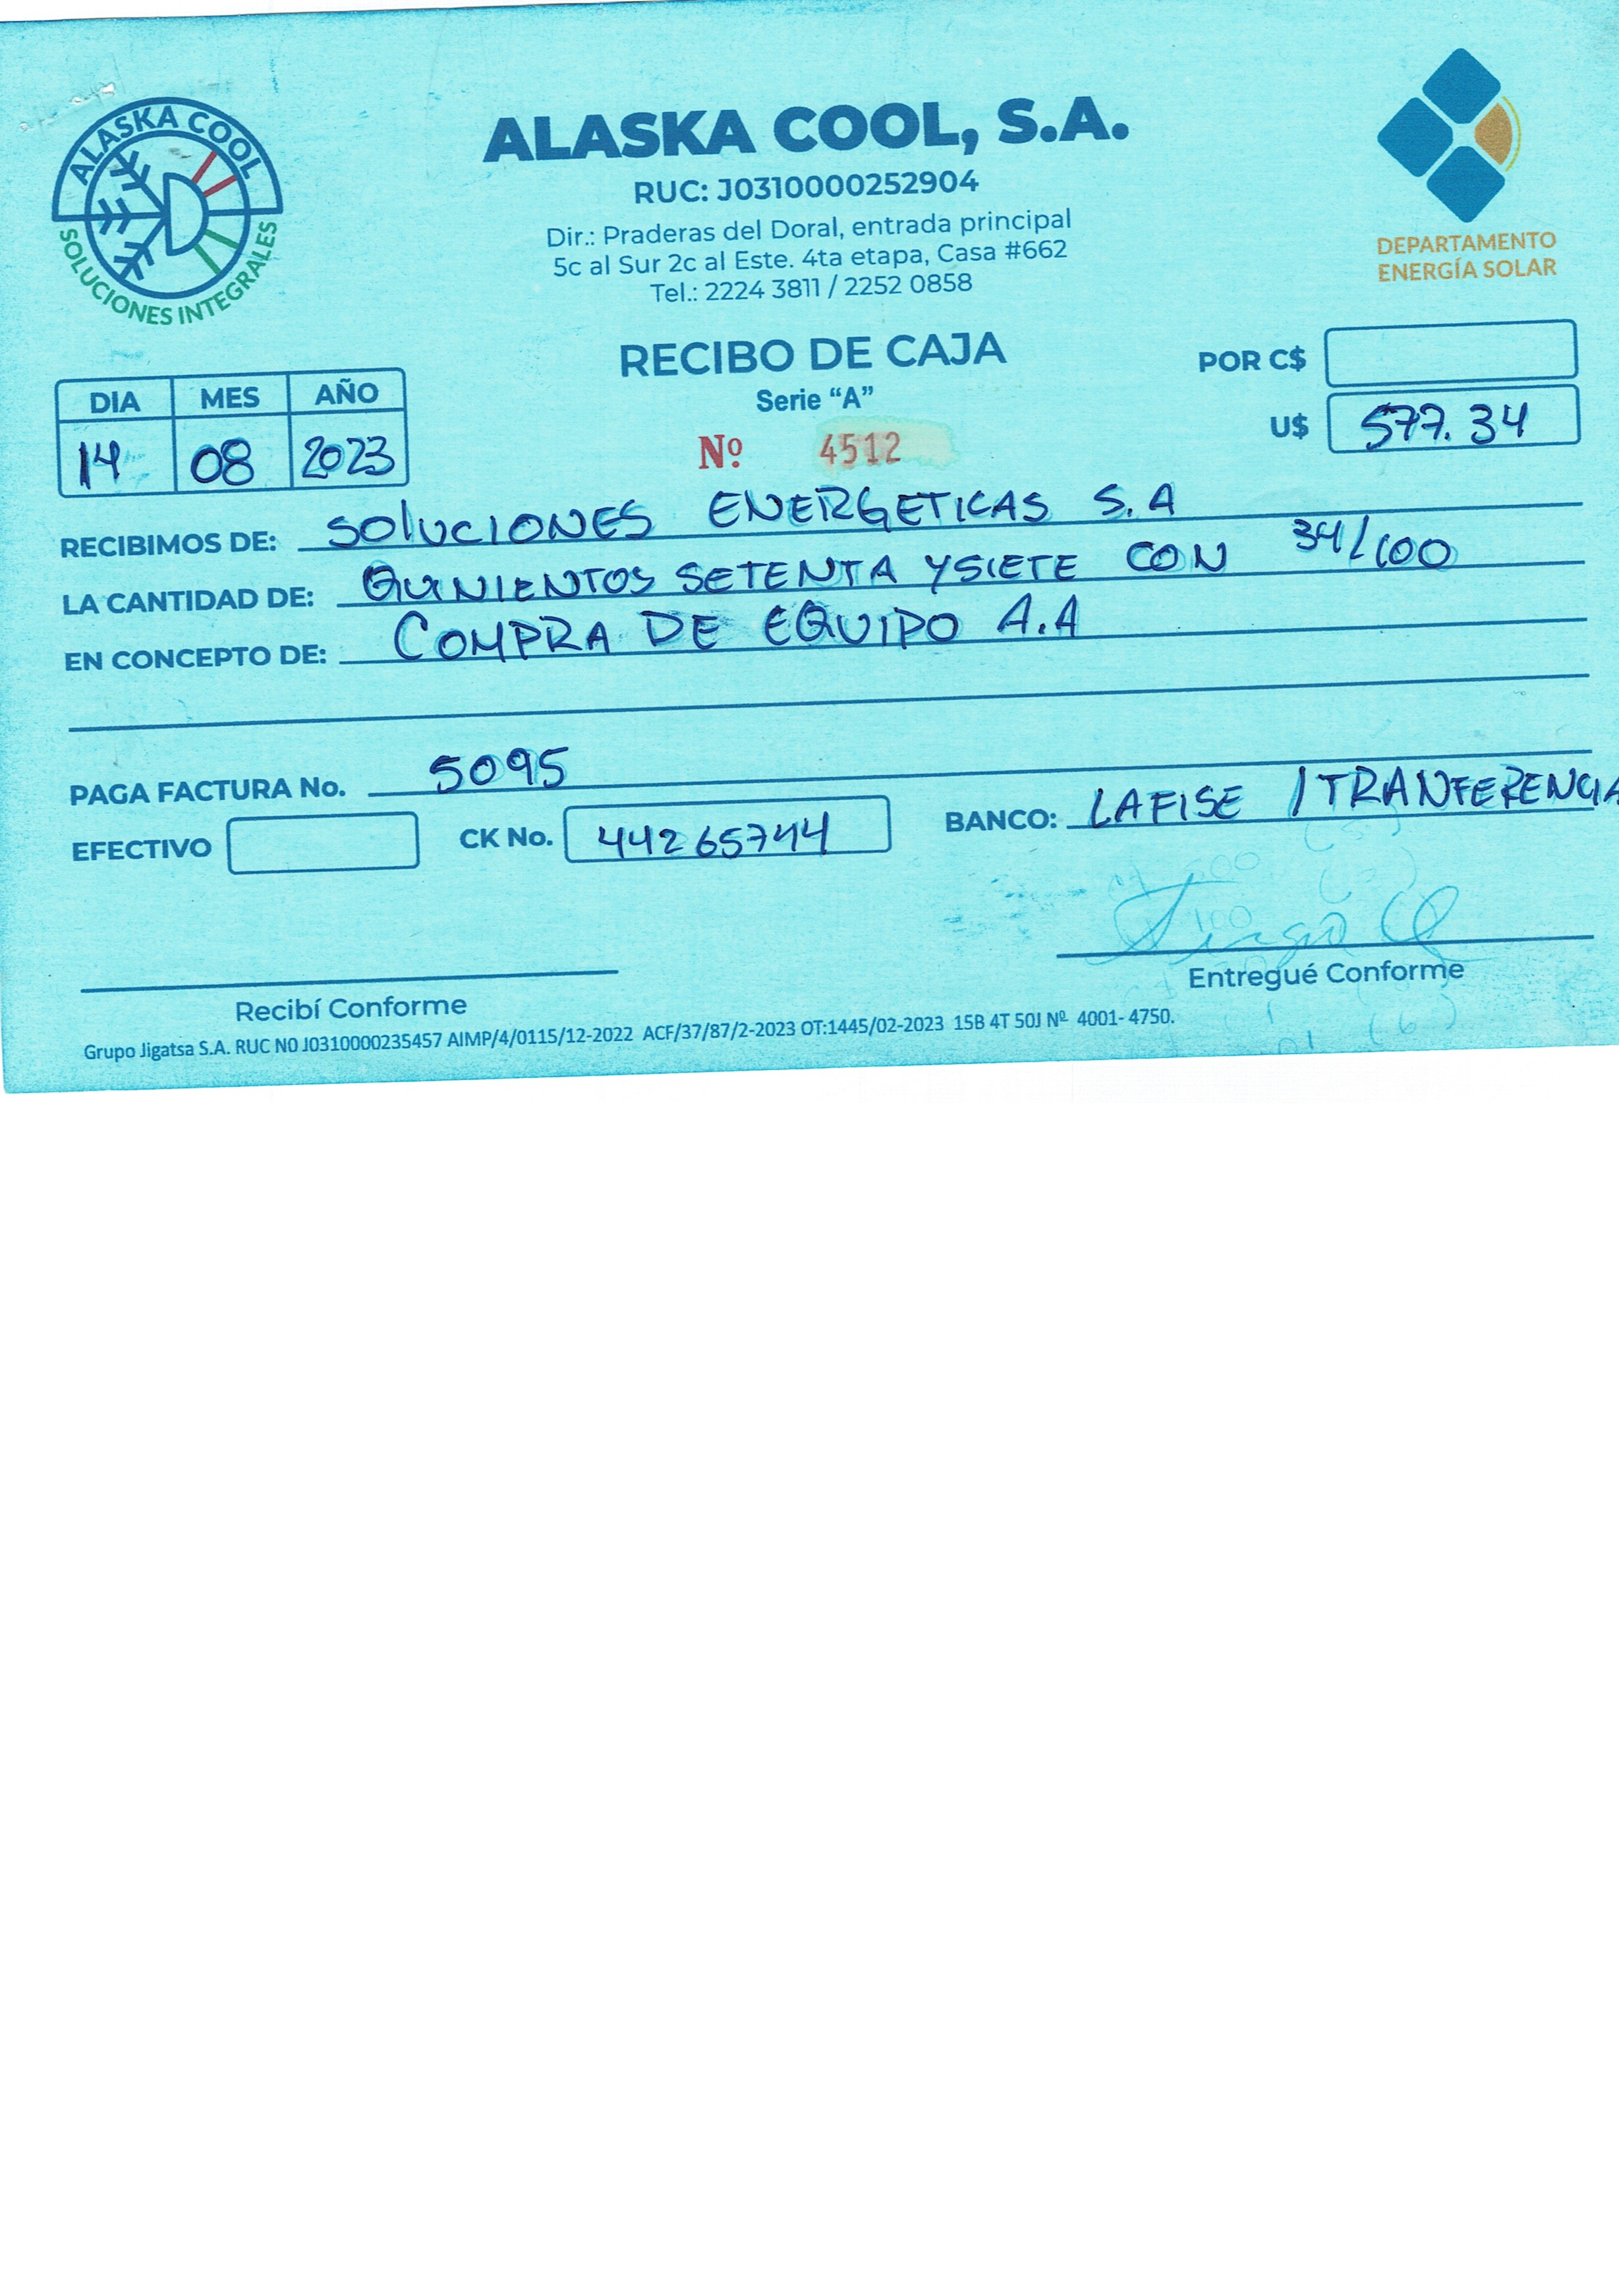 ALASKA COOL
SOLUCIONES INTEGRALES
ALASKA COOL, S.A.
RUC: J0310000252904
Dir.: Praderas del Doral, entrada principal
5c al Sur 2c al Este. 4ta etapa, Casa #662
Tel.: 2224 3811 / 2252 0858
DEPARTAMENTO
ENERGÍA SOLAR
RECIBO DE CAJA
Serie “A”
Nº 4512
POR C$
U$ 577.34
DIA MES AÑO
14 08 2023
RECIBIMOS DE: SOLUCIONES ENERGETICAS S.A
LA CANTIDAD DE: QUINIENTOS SETENTA Y SIETE CON 34/100
EN CONCEPTO DE: COMPRA DE EQUIPO A.A
PAGA FACTURA No. 5095
EFECTIVO CK No. 44265744 BANCO: LAFISE / TRANFERENCIA
Recibí Conforme
Entregué Conforme
Grupo Jigatsa S.A. RUC N0 J0310000235457 AIMP/4/0115/12-2022 ACF/37/87/2-2023 OT:1445/02-2023 15B 4T 50J Nº 4001- 4750.